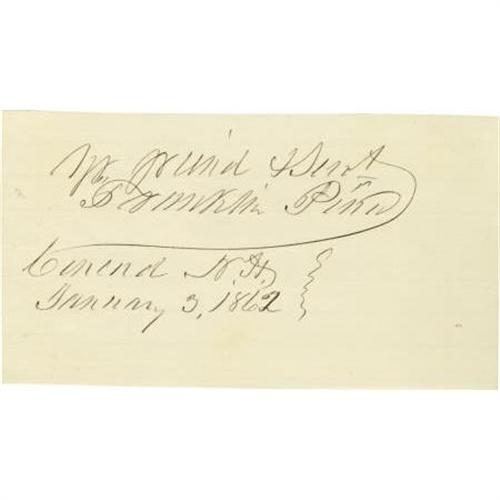 Yr friend & Servt
Franklin Pierce
Concord N.H.
January 3, 1862